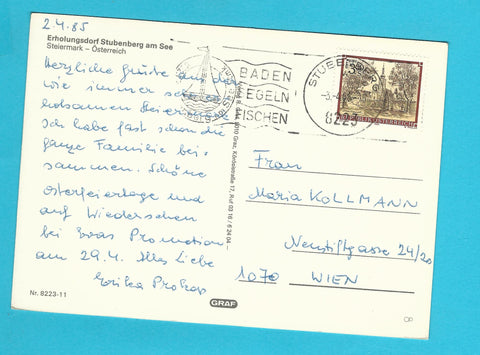 2.4.85
Erholungsdorf Stubenberg am See
Steiermark – Österreich
Herzliche Grüße aus der
wie immer schönen
Steiermark.
Ich habe fast schon die
ganze Familie bei-
sammen. Schöne
Osterfeiertage und
auf Wiedersehen
bei Evas Promotion
am 29.4. Alles Liebe
Erika Prokop
Nr. 8223-11
BADEN
SEGELN
FISCHEN
STUBENBERG
8223
REPUBLIK ÖSTERREICH
8010 Graz, Körösistraße 17, Ruf 03 16 / 6 24 04
GRAF
Frau
Maria KOLLMANN
Neustiftgasse 24/20
1070 WIEN